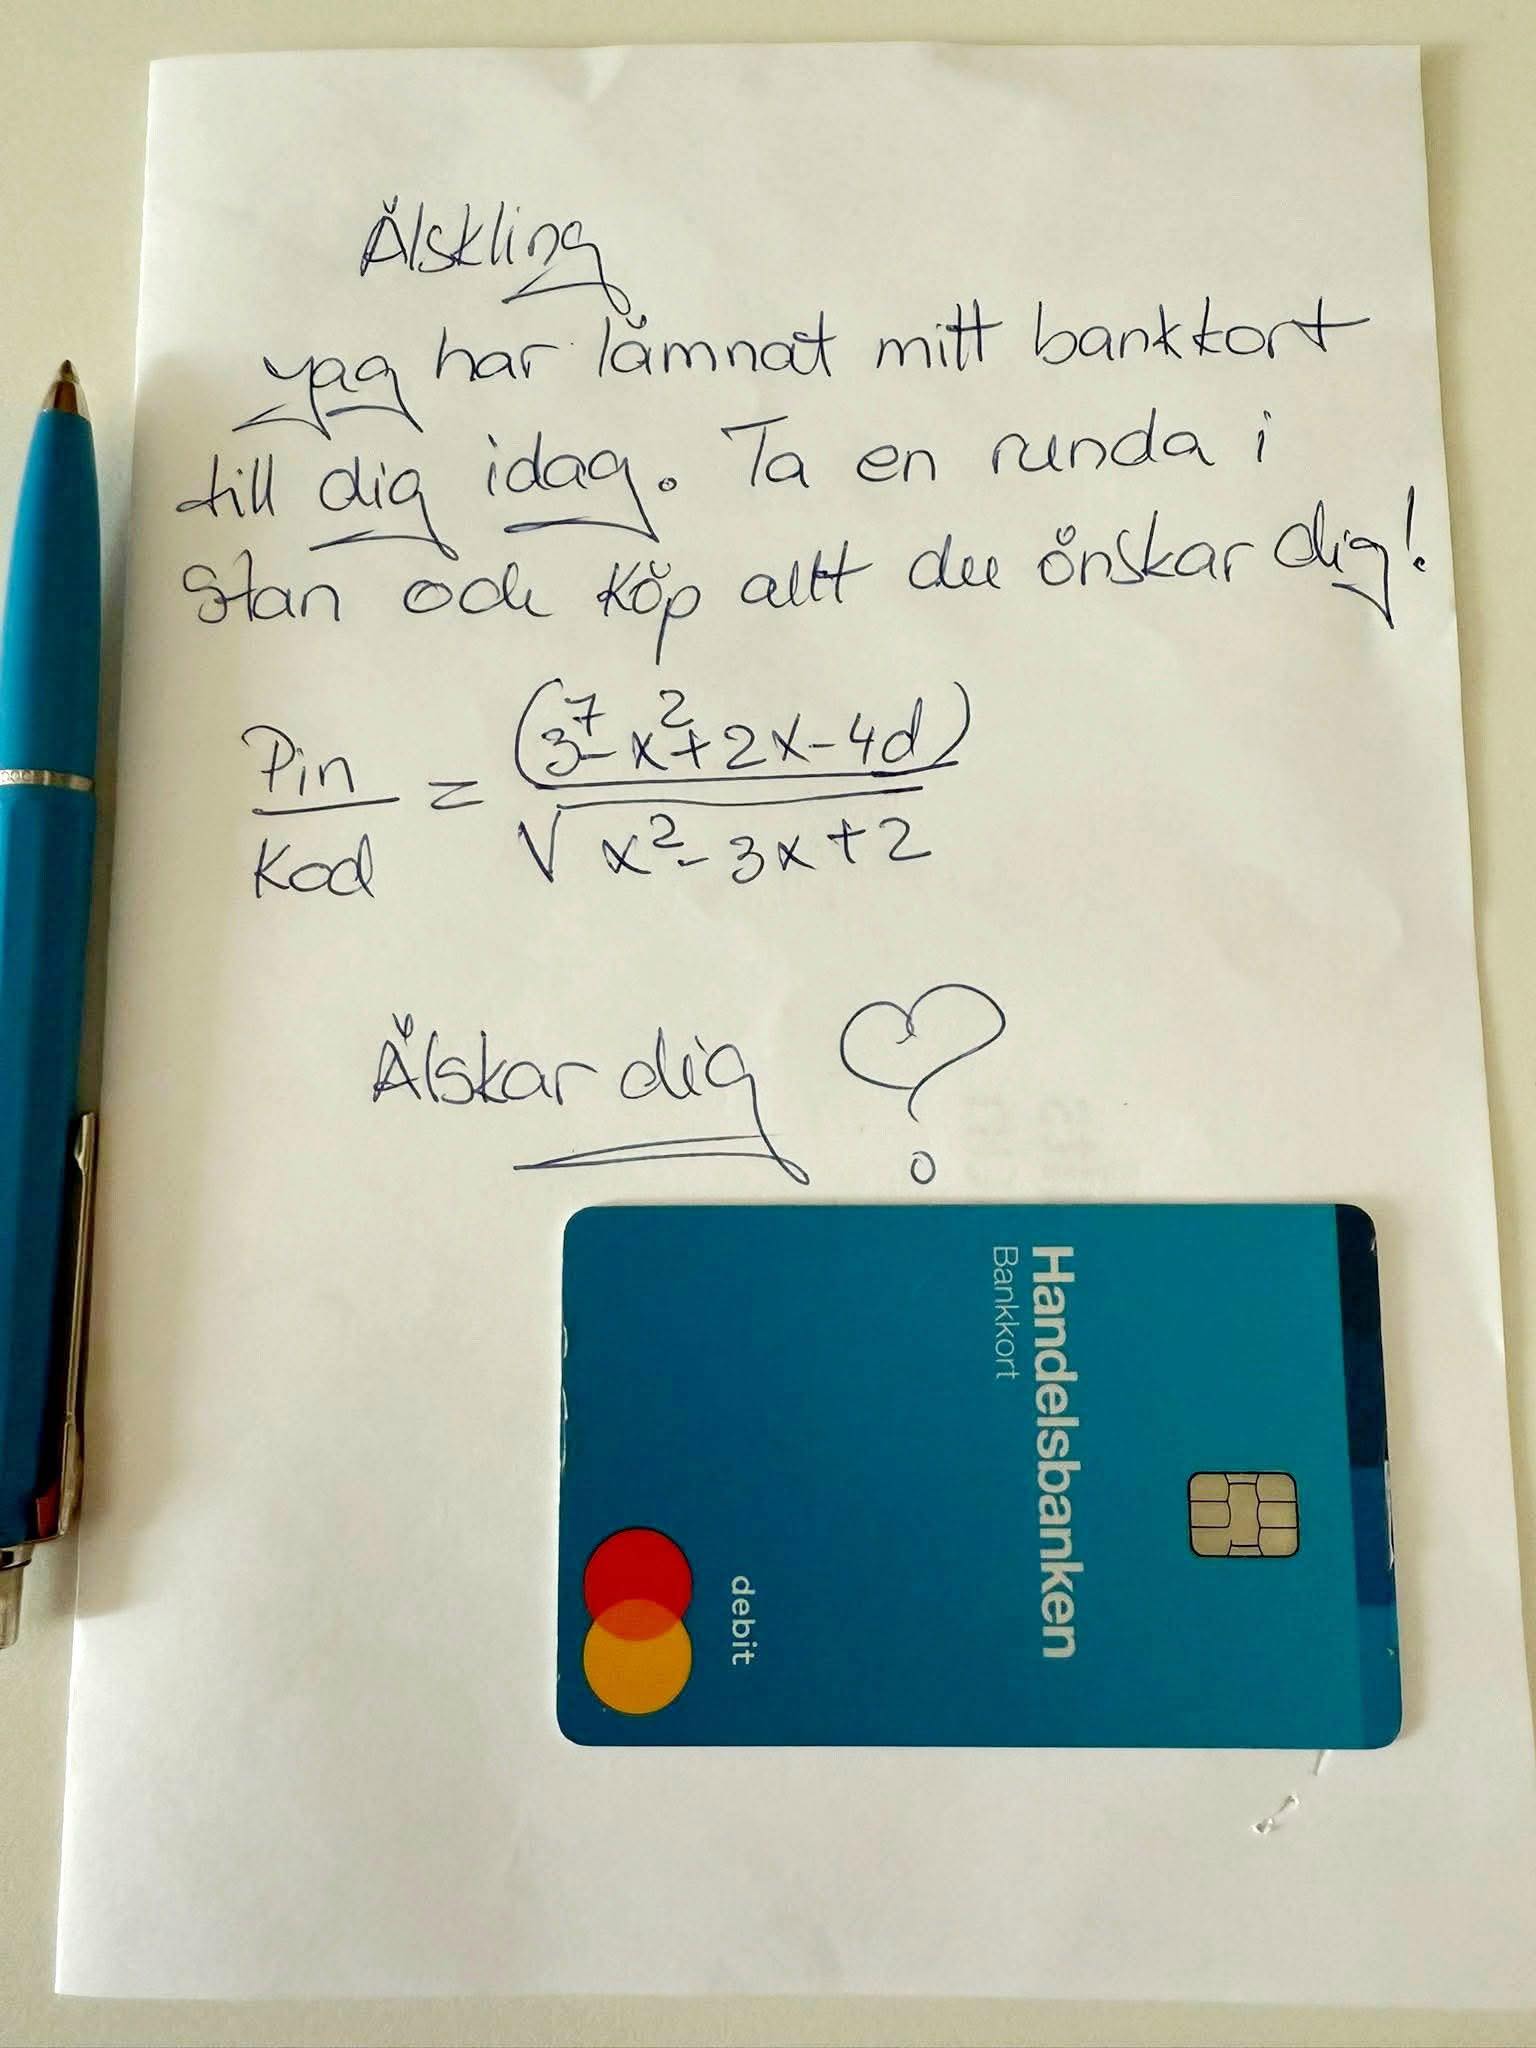 Älskling
jag har lämnat mitt bankkort
till dig idag. Ta en runda i
stan och köp allt du önskar dig!
Pin
Kod
=
(3⁷-x²+2x-4d)
√x²-3x+2
Älskar dig
Handelsbanken
Bankkort
debit